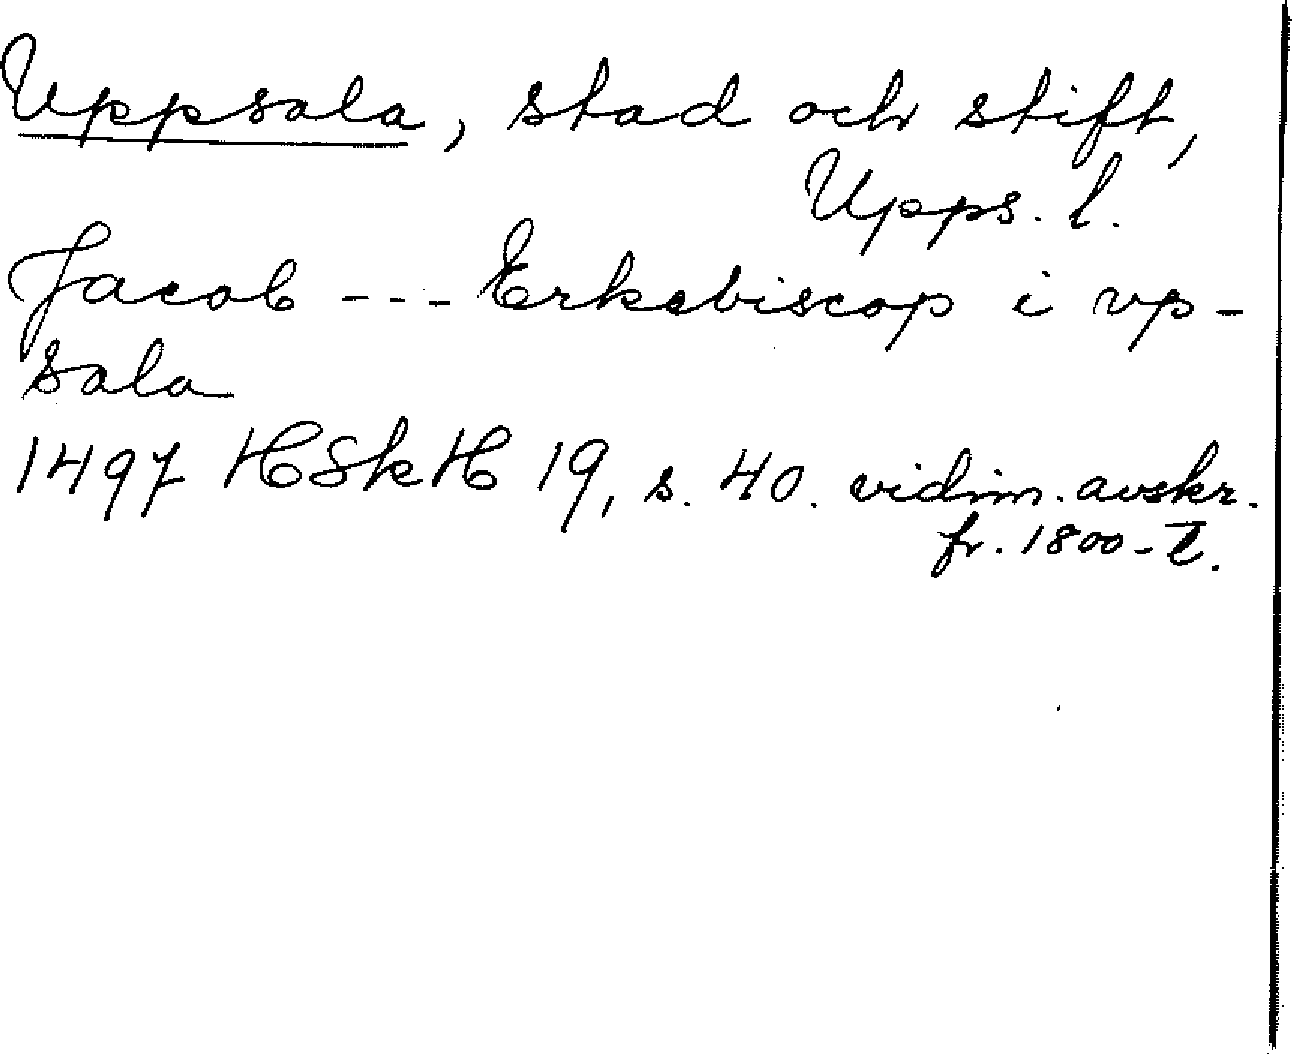 Uppsala, stad och stift,
Upps. l.
Jacob --- Erkebiscop i vp-
sala
1497 HSkH 19, s. 40. vidim. avskr.
fr. 1800-t.